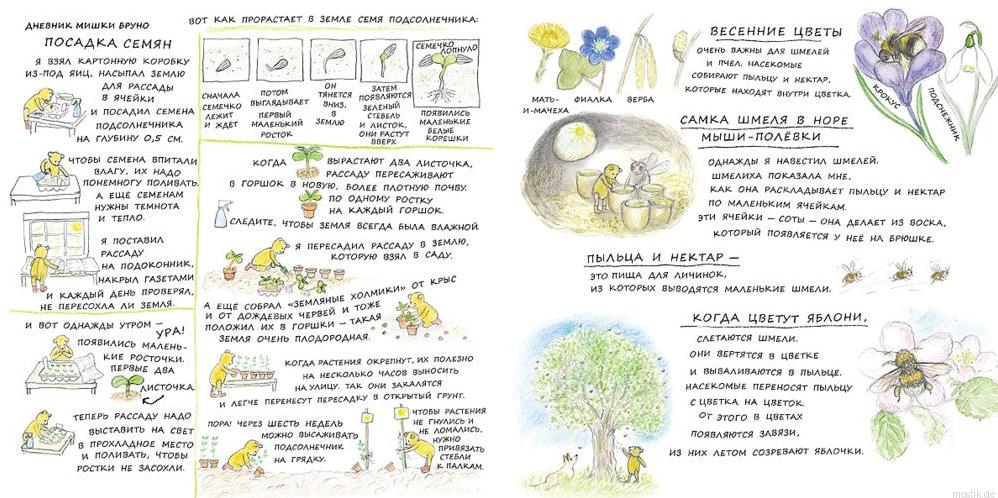 ДНЕВНИК МИШКИ БРУНО
ПОСАДКА СЕМЯН
Я ВЗЯЛ КАРТОННУЮ КОРОБКУ
ИЗ-ПОД ЯИЦ, НАСЫПАЛ ЗЕМЛЮ
ДЛЯ РАССАДЫ
В ЯЧЕЙКИ
И ПОСАДИЛ СЕМЕНА
ПОДСОЛНЕЧНИКА
НА ГЛУБИНУ 0,5 СМ.
ЧТОБЫ СЕМЕНА ВПИТАЛИ
ВЛАГУ, ИХ НАДО
ПОНЕМНОГУ ПОЛИВАТЬ.
А ЕЩЕ СЕМЕНАМ
НУЖНЫ ТЕМНОТА
И ТЕПЛО.
Я ПОСТАВИЛ
РАССАДУ
НА ПОДОКОННИК,
НАКРЫЛ ГАЗЕТАМИ
И КАЖДЫЙ ДЕНЬ ПРОВЕРЯЛ,
НЕ ПЕРЕСОХЛА ЛИ ЗЕМЛЯ.
И ВОТ ОДНАЖДЫ УТРОМ –
УРА!
ПОЯВИЛИСЬ МАЛЕНЬ-
КИЕ РОСТОЧКИ.
ПЕРВЫЕ ДВА
ЛИСТОЧКА.
ТЕПЕРЬ РАССАДУ НАДО
ВЫСТАВИТЬ НА СВЕТ
В ПРОХЛАДНОЕ МЕСТО
И ПОЛИВАТЬ, ЧТОБЫ
РОСТКИ НЕ ЗАСОХЛИ.
ВОТ КАК ПРОРАСТАЕТ В ЗЕМЛЕ СЕМЯ ПОДСОЛНЕЧНИКА:
СЕМЕЧКО
ЛОПНУЛО
СНАЧАЛА
СЕМЕЧКО
ЛЕЖИТ
И ЖДЕТ
ПОТОМ
ВЫГЛЯДЫВАЕТ
ПЕРВЫЙ
МАЛЕНЬКИЙ
РОСТОК
ОН
ТЯНЕТСЯ
ВНИЗ,
В
ЗЕМЛЮ
ЗАТЕМ
ПОЯВЛЯЮТСЯ
ЗЕЛЕНЫЙ
СТЕБЕЛЬ
И ЛИСТОК,
ОНИ РАСТУТ
ВВЕРХ
ПОЯВИЛИСЬ
МАЛЕНЬКИЕ
БЕЛЫЕ
КОРЕШКИ
КОГДА ВЫРАСТАЮТ ДВА ЛИСТОЧКА,
РАССАДУ ПЕРЕСАЖИВАЮТ
В ГОРШОК В НОВУЮ, БОЛЕЕ ПЛОТНУЮ ПОЧВУ.
ПО ОДНОМУ РОСТКУ
НА КАЖДЫЙ ГОРШОК.
СЛЕДИТЕ, ЧТОБЫ ЗЕМЛЯ ВСЕГДА БЫЛА ВЛАЖНОЙ.
Я ПЕРЕСАДИЛ РАССАДУ В ЗЕМЛЮ,
КОТОРУЮ ВЗЯЛ В САДУ.
А ЕЩЁ СОБРАЛ «ЗЕМЛЯНЫЕ ХОЛМИКИ» ОТ КРЫС
И ОТ ДОЖДЕВЫХ ЧЕРВЕЙ И ТОЖЕ
ПОЛОЖИЛ ИХ В ГОРШКИ – ТАКАЯ
ЗЕМЛЯ ОЧЕНЬ ПЛОДОРОДНАЯ.
КОГДА РАСТЕНИЯ ОКРЕПНУТ, ИХ ПОЛЕЗНО
НА НЕСКОЛЬКО ЧАСОВ ВЫНОСИТЬ
НА УЛИЦУ. ТАК ОНИ ЗАКАЛЯТСЯ
И ЛЕГЧЕ ПЕРЕНЕСУТ ПЕРЕСАДКУ В ОТКРЫТЫЙ ГРУНТ.
ПОРА! ЧЕРЕЗ ШЕСТЬ НЕДЕЛЬ
МОЖНО ВЫСАЖИВАТЬ
ПОДСОЛНЕЧНИК
НА ГРЯДКУ.
ЧТОБЫ РАСТЕНИЯ
НЕ ГНУЛИСЬ И
НЕ ЛОМАЛИСЬ,
НУЖНО
ПРИВЯЗАТЬ
СТЕБЛИ
К ПАЛКАМ.
ВЕСЕННИЕ ЦВЕТЫ
ОЧЕНЬ ВАЖНЫ ДЛЯ ШМЕЛЕЙ
И ПЧЕЛ. НАСЕКОМЫЕ
СОБИРАЮТ ПЫЛЬЦУ И НЕКТАР,
КОТОРЫЕ НАХОДЯТ ВНУТРИ ЦВЕТКА.
МАТЬ-
И-МАЧЕХА
ФИАЛКА
ВЕРБА
КРОКУС
ПОДСНЕЖНИК
САМКА ШМЕЛЯ В НОРЕ
МЫШИ-ПОЛЁВКИ
ОДНАЖДЫ Я НАВЕСТИЛ ШМЕЛЕЙ.
ШМЕЛИХА ПОКАЗАЛА МНЕ,
КАК ОНА РАСКЛАДЫВАЕТ ПЫЛЬЦУ И НЕКТАР
ПО МАЛЕНЬКИМ ЯЧЕЙКАМ.
ЭТИ ЯЧЕЙКИ – СОТЫ – ОНА ДЕЛАЕТ ИЗ ВОСКА,
КОТОРЫЙ ПОЯВЛЯЕТСЯ У НЕЁ НА БРЮШКЕ.
ПЫЛЬЦА И НЕКТАР –
ЭТО ПИЩА ДЛЯ ЛИЧИНОК,
ИЗ КОТОРЫХ ВЫВОДЯТСЯ МАЛЕНЬКИЕ ШМЕЛИ.
КОГДА ЦВЕТУТ ЯБЛОНИ,
СЛЕТАЮТСЯ ШМЕЛИ.
ОНИ ВЕРТЯТСЯ В ЦВЕТКЕ
И ВЫВАЛИВАЮТСЯ В ПЫЛЬЦЕ.
НАСЕКОМЫЕ ПЕРЕНОСЯТ ПЫЛЬЦУ
С ЦВЕТКА НА ЦВЕТОК.
ОТ ЭТОГО В ЦВЕТАХ
ПОЯВЛЯЮТСЯ ЗАВЯЗИ,
ИЗ НИХ ЛЕТОМ СОЗРЕВАЮТ ЯБЛОЧКИ.
mostik.de